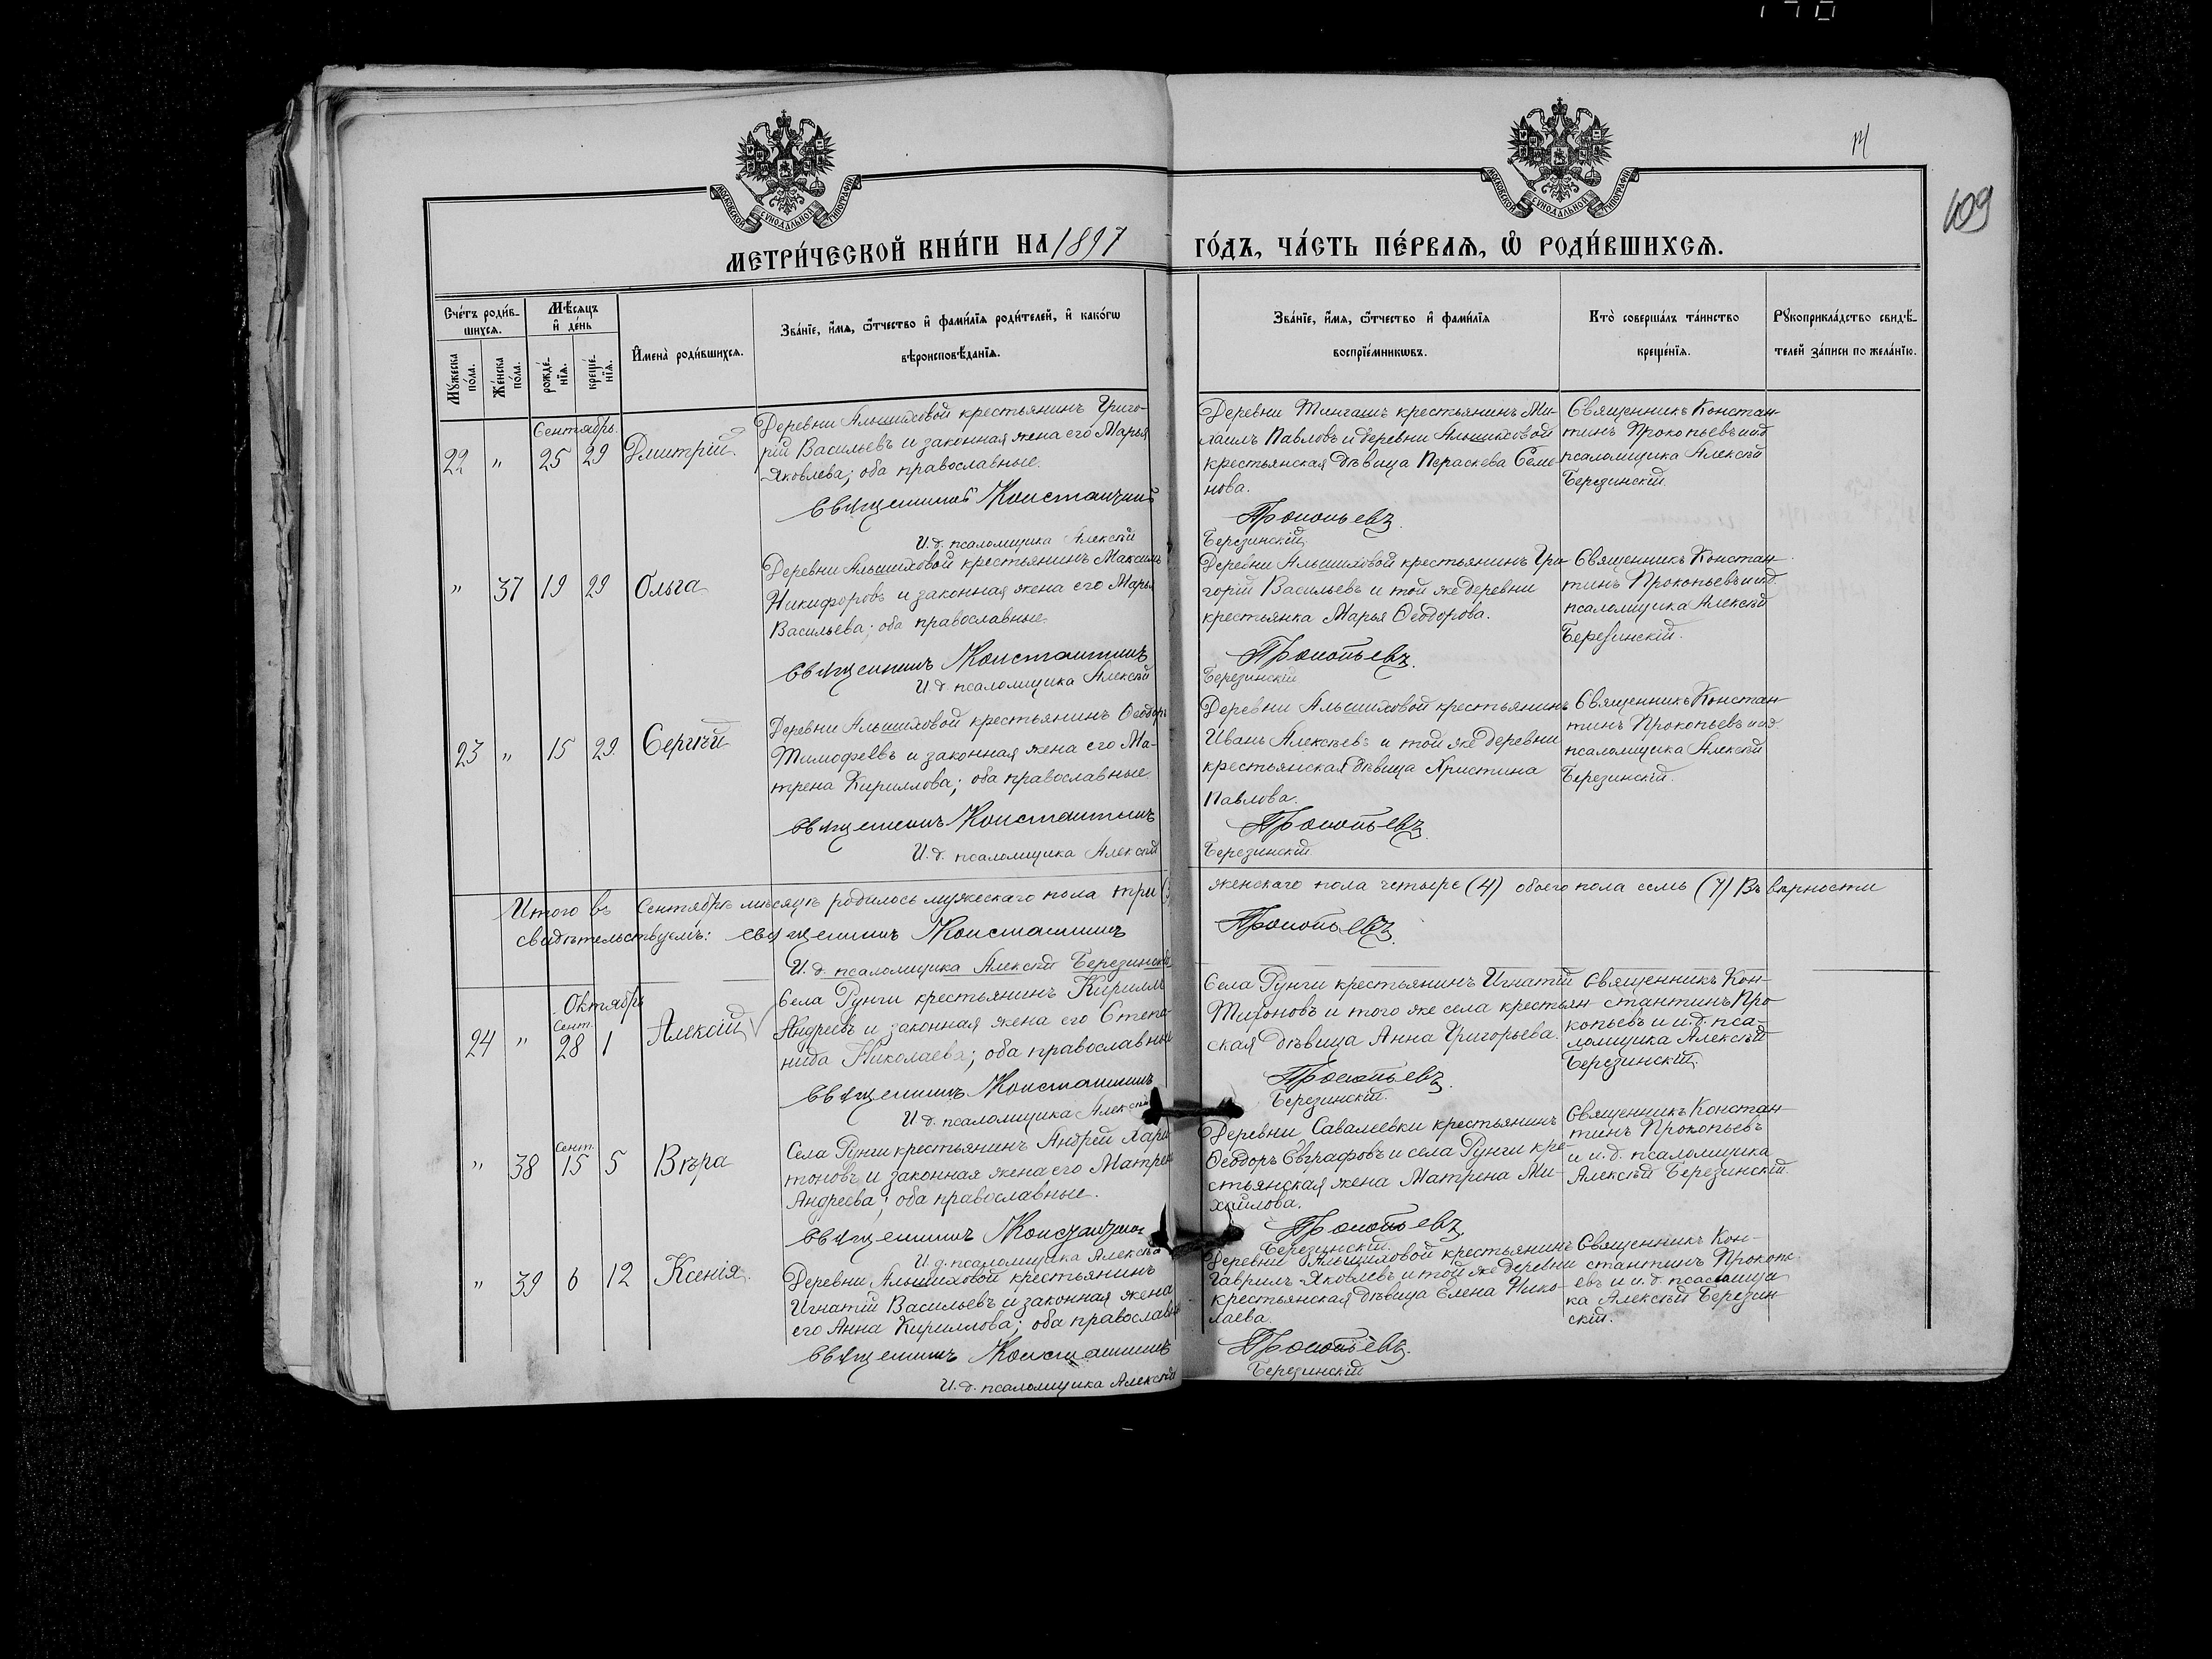 109
МОСКОВСКОЙ СѴНОДАЛЬНОЙ ТИПОГРАФІИ
МОСКОВСКОЙ СѴНОДАЛЬНОЙ ТИПОГРАФІИ
МЕТРИ́ЧЕСКОЙ КНИ́ГИ НА 1897 ГО́ДЪ, ЧА́СТЬ ПЕ́РВАѦ, Ѡ҆ РОДИ́ВШИХСѦ.
Сче́тъ роди́в-
шихсѧ.
Мꙋ́жеска по́ла.
Же́нска по́ла.
Мѣ́сѧцъ
и҆ де́нь
рожде́-
нїѧ.
креще́-
нїѧ.
И҆мена̀ роди́вшихсѧ.
Зва́нїе, и҆́мѧ, ѻ҆́тчество и҆ фами́лїѧ роди́телей, и҆ како́гѡ
вѣроисповѣ́данїѧ.
Зва́нїе, и҆́мѧ, ѻ҆́тчество и҆ фами́лїѧ
воспрїе́мникѡвъ.
Кто̀ соверша́лъ та́инство
креще́нїѧ.
Рꙋкоприкла́дство свидѣ́-
телей за́писи по жела́нїю.
Сентябрь.
22 " 25 29 Дмитрій.
Деревни Альшиховой крестьянинъ Григо-
рій Васильевъ и законная жена его Марья
Яковлева; оба православные.
Священникъ Константинъ
И. д. псаломщика Алексѣй
Деревни Тингашъ крестьянинъ Ми-
хаилъ Павловъ и деревни Альшиховой
крестьянская дѣвица Параскева Семе-
нова.
Прокопьевъ.
Березинскій
Священникъ Констан-
тинъ Прокопьевъ и и.д.
псаломщика Алексѣй
Березинскій.
" 37 19 29 Ольга
Деревни Альшиховой крестьянинъ Максимъ
Никифоровъ и законная жена его Марья
Васильева; оба православные.
Священникъ Константинъ
И. д. псаломщика Алексѣй
Деревни Альшиховой крестьянинъ Гри-
горій Васильевъ и той же деревни
крестьянка Марья Ѳеодорова.
Прокопьевъ.
Березинскій
Священникъ Констан-
тинъ Прокопьевъ и и.д.
псаломщика Алексѣй
Березинскій.
23 " 15 29 Сергѣй
Деревни Альшиховой крестьянинъ Ѳеодоръ
Тимофеевъ и законная жена его Ма-
трена Кириллова; оба православные.
Священникъ Константинъ
И. д. псаломщика Алексѣй
Деревни Альшиховой крестьянинъ
Иванъ Алексѣевъ и той же деревни
крестьянская дѣвица Христина
Павлова.
Прокопьевъ.
Березинскій
Священникъ Констан-
тинъ Прокопьевъ и и.д.
псаломщика Алексѣй
Березинскій.
Итого въ Сентябрѣ мѣсяцѣ родилось мужескаго пола три (3) женскаго пола четыре (4) обоего пола семь (7) Въ вѣрности
свидѣтельствуемъ: священникъ Константинъ Прокопьевъ.
И. д. псаломщика Алексѣй Березинскій
Октябрь
24 " Сент. 28 1 Алексій
Села Рунги крестьянинъ Кириллъ
Андреевъ и законная жена его Степа-
нида Николаева; оба православные
Священникъ Константинъ
И. д. псаломщика Алексѣй
Села Рунги крестьянинъ Игнатій
Тихоновъ и того же села крестьян-
ская дѣвица Анна Григорьева.
Прокопьевъ.
Березинскій.
Священникъ Кон-
стантинъ Про-
копьевъ и и.д. пса-
ломщика Алексѣй
Березинскій.
" 38 Сент. 15 5 Вѣра
Села Рунги крестьянинъ Андрей Хари-
тоновъ и законная жена его Матрена
Андреева; оба православные.
Священникъ Константинъ
И. д. псаломщика Алексѣй
Деревни Савалеевки крестьянинъ
Ѳеодоръ Евграфовъ и села Рунги кре-
стьянская жена Матрена Ми-
хайлова.
Прокопьевъ.
Березинскій.
Священникъ Констан-
тинъ Прокопьевъ
и и. д. псаломщика
Алексѣй Березинскій.
" 39 6 12 Ксенія.
Деревни Альшиховой крестьянинъ
Игнатій Васильевъ и законная жена
его Анна Кириллова; оба православные
Священникъ Константинъ
И. д. псаломщика Алексѣй
Деревни Альшиховой крестьянинъ
Гаврилъ Яковлевъ и той же деревни
крестьянская дѣвица Елена Нико-
лаева.
Прокопьевъ.
Березинскій
Священникъ Кон-
стантинъ Прокопь-
евъ и и. д. псаломщи-
ка Алексѣй Березин-
скій.